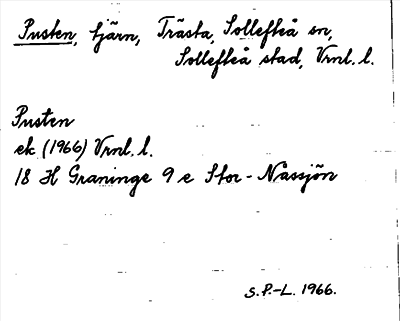 Pusten, tjärn, Trästa, Sollefteå sn,
Sollefteå stad, Vrnl. l.
Pusten
ek (1966) Vrnl. l.
18 H Graninge 9 e Stor-Nässjön
S.P.-L. 1966.